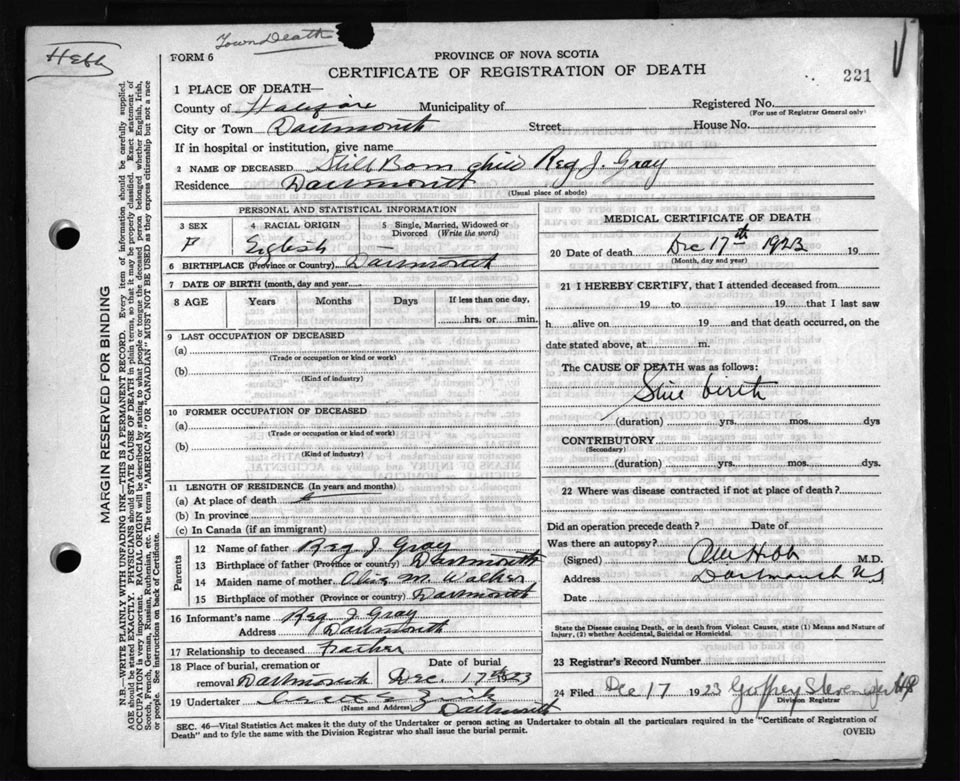 Town Death
Hebb
FORM 6
PROVINCE OF NOVA SCOTIA
CERTIFICATE OF REGISTRATION OF DEATH
221
1 PLACE OF DEATH—
County of Halifax Municipality of Registered No.
(For use of Registrar General only)
City or Town Dartmouth Street House No.
If in hospital or institution, give name
2 NAME OF DECEASED Still Born child Reg J. Gray
Residence Dartmouth
(Usual place of abode)
PERSONAL AND STATISTICAL INFORMATION
3 SEX 4 RACIAL ORIGIN 5 Single, Married, Widowed or Divorced (Write the word)
F English —
6 BIRTHPLACE (Province or Country) Dartmouth
7 DATE OF BIRTH (month, day and year)
8 AGE Years Months Days If less than one day,
hrs. or min.
9 LAST OCCUPATION OF DECEASED
(a)
(Trade or occupation or kind or work)
(b)
(Kind of industry)
10 FORMER OCCUPATION OF DECEASED
(a)
(Trade or occupation or kind of work)
(b)
(Kind of industry)
11 LENGTH OF RESIDENCE (In years and months)
(a) At place of death
(b) In province
(c) In Canada (if an immigrant)
Parents
12 Name of father Reg J. Gray
13 Birthplace of father (Province or country) Dartmouth
14 Maiden name of mother M. Walker
15 Birthplace of mother (Province or country) Dartmouth
16 Informant's name Reg J Gray
Address Dartmouth
17 Relationship to deceased Father
18 Place of burial, cremation or removal Dartmouth Date of burial Dec. 17th 23
19 Undertaker Zink
(Name and Address) Dartmouth
MEDICAL CERTIFICATE OF DEATH
20 Date of death Dec 17th 1923 19
(Month, day and year)
21 I HEREBY CERTIFY, that I attended deceased from
19 to 19 that I last saw
h alive on 19 and that death occurred, on the
date stated above, at m.
The CAUSE OF DEATH was as follows:
Still birth
(duration) yrs. mos. dys
CONTRIBUTORY
(Secondary)
(duration) yrs. mos. dys.
22 Where was disease contracted if not at place of death?
Did an operation precede death? Date of
Was there an autopsy?
(Signed) Hebb M.D.
Address Dartmouth NS
Date
State the Disease causing Death, or in death from Violent Causes, state (1) Means and Nature of
Injury, (2) whether Accidental, Suicidal or Homicidal.
23 Registrar's Record Number
24 Filed Dec 17 1923 Godfrey
Division Registrar
SEC. 46—Vital Statistics Act makes it the duty of the Undertaker or person acting as Undertaker to obtain all the particulars required in the "Certificate of Registration of
Death" and to fyle the same with the Division Registrar who shall issue the burial permit.
(OVER)
MARGIN RESERVED FOR BINDING
N.B.—WRITE PLAINLY WITH UNFADING INK—THIS IS A PERMANENT RECORD. Every item of information should be carefully supplied.
AGE should be stated EXACTLY. PHYSICIANS should STATE CAUSE OF DEATH in plain terms, so that it may be properly classified. Exact statement of
OCCUPATION is very important. RACIAL ORIGIN will be described by stating to what people or tongue the deceased person belonged whether English, Irish,
Scotch, French, German, Russian, Ruthenian, etc. The terms "AMERICAN" OR "CANADIAN" MUST NOT BE USED as they express citizenship but not a race
or people. See instructions on back of Certificate.